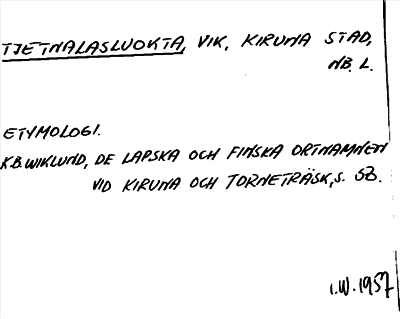 TJETNALASLUOKTA, VIK, KIRUNA STAD,
NB. L.
ETYMOLOGI.
K.B. WIKLUND, DE LAPSKA OCH FINSKA ORTNAMNEN
VID KIRUNA OCH TORNETRÄSK, S. 52.
I.W. 1957